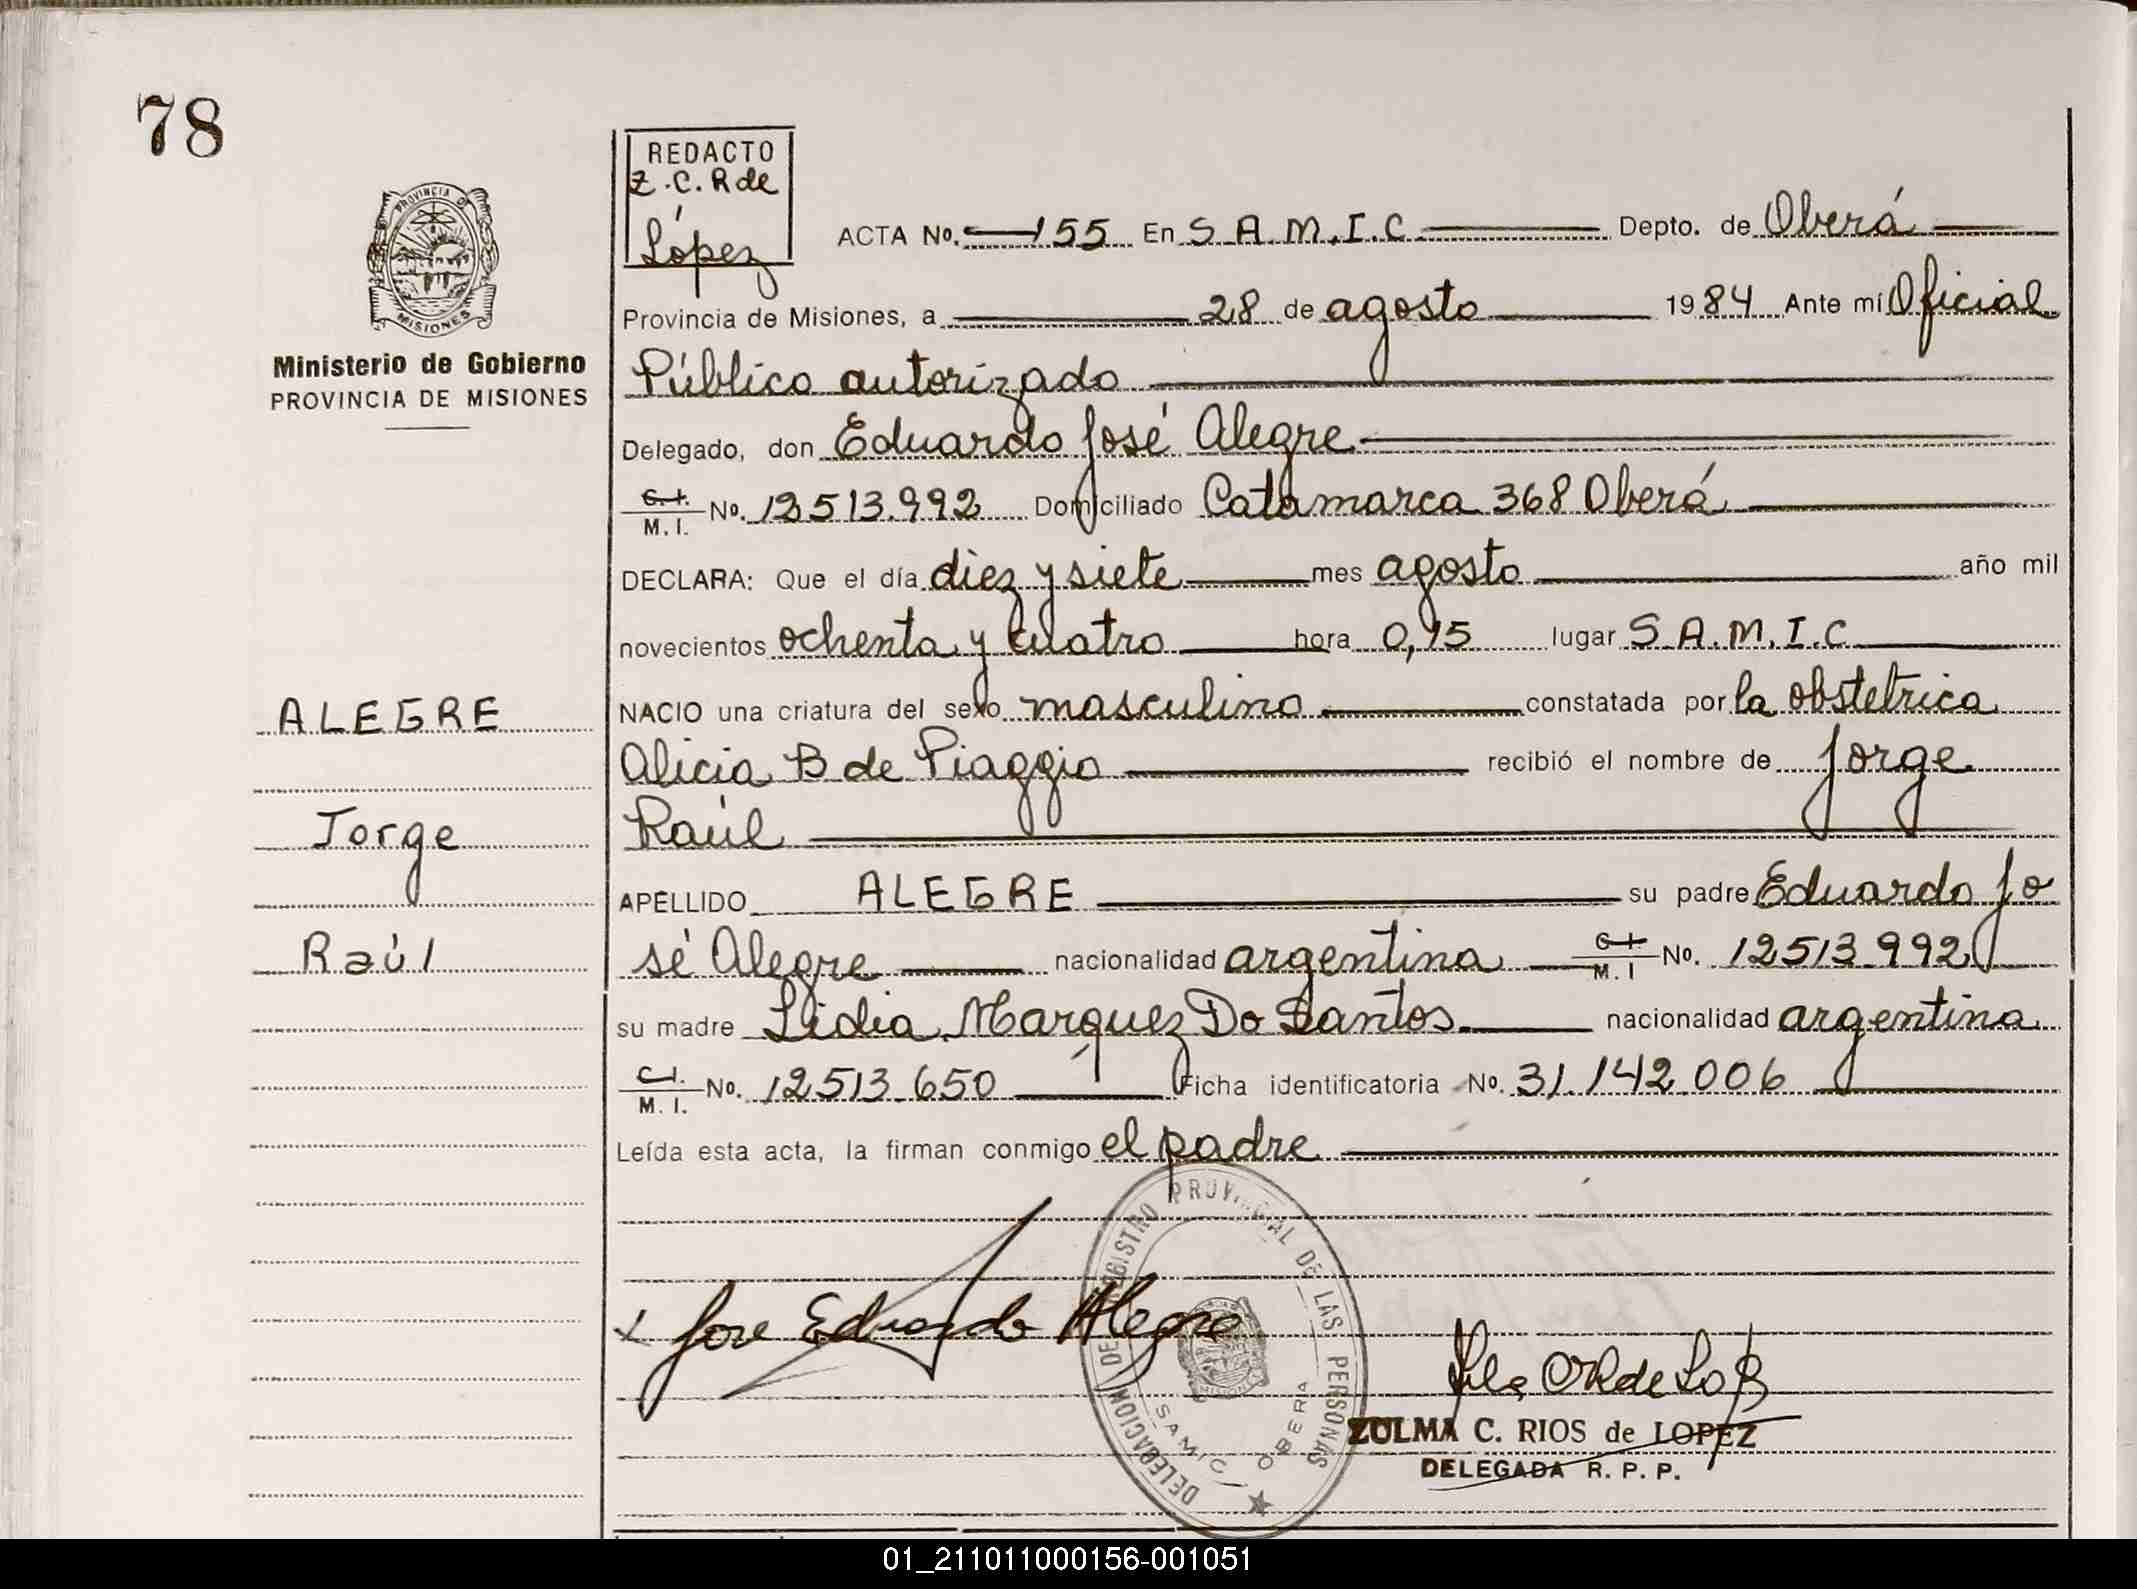 78
REDACTO
Z.C.R de
López
PROVINCIA DE
MISIONES
Ministerio de Gobierno
PROVINCIA DE MISIONES
ACTA No. 155 En S.A.M.I.C Depto. de Oberá
Provincia de Misiones, a 28 de agosto 1984 Ante mí Oficial
Público autorizado
Delegado, don Eduardo José Alegre
C.I. M.I. No. 12513.992 Domiciliado Catamarca 368 Oberá
DECLARA: Que el día diez y siete mes agosto año mil
novecientos ochenta y cuatro hora 0,15 lugar S.A.M.I.C
ALEGRE
NACIO una criatura del sexo masculino constatada por la obstetrica
Alicia B de Piaggio recibió el nombre de Jorge
Jorge
Raúl
APELLIDO ALEGRE su padre Eduardo Jo
Raúl
sé Alegre nacionalidad argentina C.I. M.I No. 12513992
su madre Lidia Marquez Do Santos nacionalidad argentina
C.I. M.I. No. 12513.650 Ficha identificatoria No. 31.142.006
Leída esta acta, la firman conmigo el padre
DELEGACION DE REGISTRO PROVINCIAL DE LAS PERSONAS
SAMIC OBERA
Jose Eduardo Alegre
ZULMA C. RIOS de LOPEZ
DELEGADA R. P. P.
01_211011000156-001051